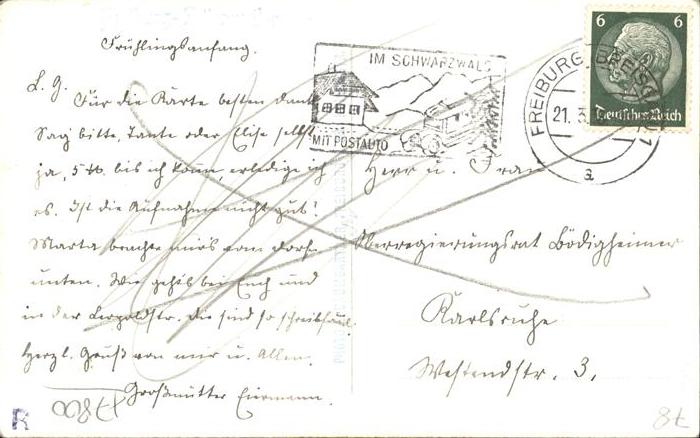 Frühlingsanfang.
L. G.
Für die Karte besten Dank
Sag bitte, Tante oder Elise selbst
ja, 5 M. bis ich komme erledige ich
es. Ist die Aufnahme nicht gut!
Marta brachte mir's vom Dorf
unten. Wie geht's bei Euch und
in der Leopoldstr. die sind so schreibfaul.
Herzl. Gruß von mir u. Allen.
Großmutter Eiermann.
IM SCHWARZWALD
MIT POSTAUTO
FREIBURG BREISGAU 1
21. 3.
a
6 6
Deutsches Reich
Herrn u. Frau
Oberregierungsrat Bödigheimer
Karlsruhe
Westendstr. 3.
R
87